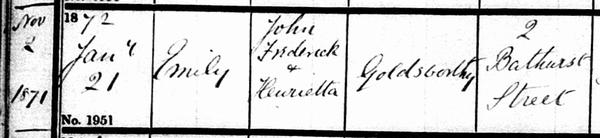 Nov
2
1871
1872
Jany
21
No. 1951
Emily
John
Frederick
&
Henrietta
Goldsworthy
2
Bathurst
Street